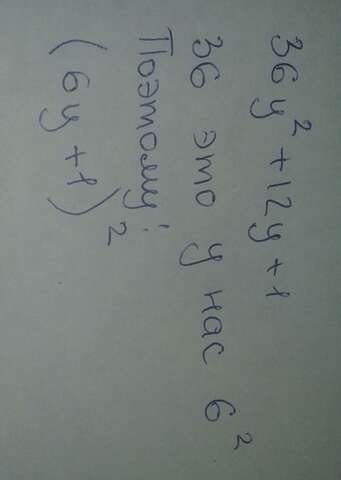 36y² + 12y + 1
36 это у нас 6²
Поэтому:
(6y + 1)²